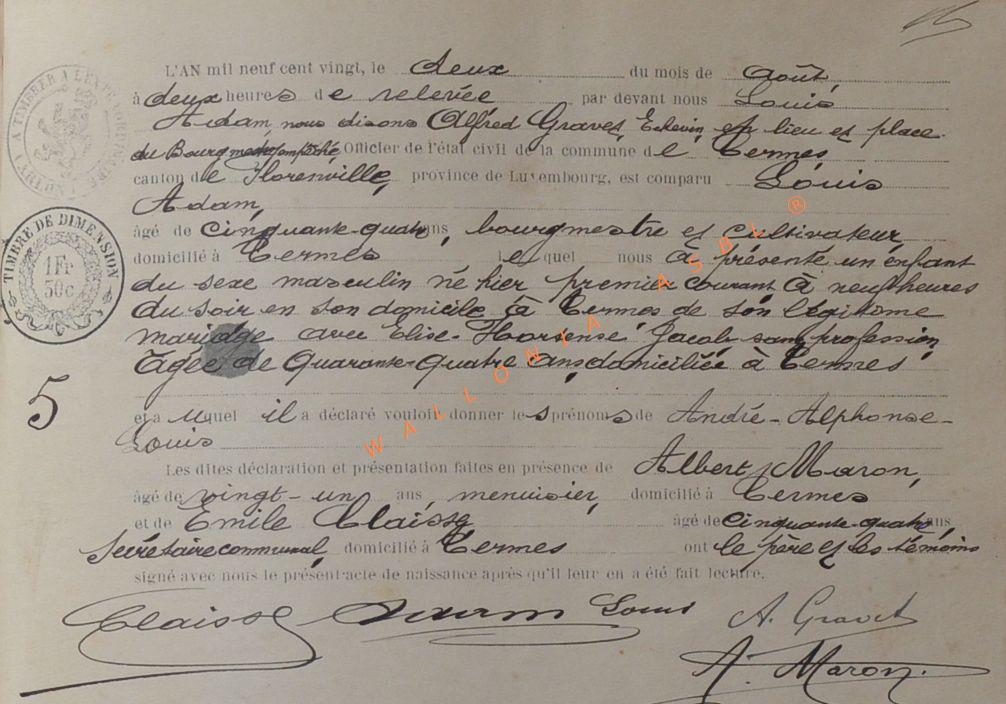 L'AN mil neuf cent vingt, le deux du mois de Août,
à deux heures de relevée par devant nous Louis
Adam, nous disons Alfred Gravet Echevin en lieu et place
du Bourgmestre empêché Officier de l'état civil de la commune de Termes,
canton de Florenville, province de Luxembourg, est comparu Louis
Adam,
âgé de cinquante-quatre ans, bourgmestre et cultivateur,
domicilié à Termes lequel nous a présenté un enfant
du sexe masculin né hier premier courant à neuf heures
du soir en son domicile à Termes de son légitime
mariage avec Elise-Hortense Jacob sans profession
âgée de Quarante-Quatre ans, domiciliée à Termes
5
et auquel il a déclaré vouloir donner les prénoms de André-Alphonse-
Louis
Les dites déclaration et présentation faites en présence de Albert Maron,
âgé de vingt-un ans, menuisier, domicilié à Termes
et de Emile Claisse âgé de cinquante-quatre ans,
secrétaire communal, domicilié à Termes ont le père et les témoins
signé avec nous le présent acte de naissance après qu'il leur en a été fait lecture.
Claisse Adam Louis A. Gravet
A. Maron.
TIMBRE DE DIMENSION
1 Fr
30c
WALLONIA ASBL ®